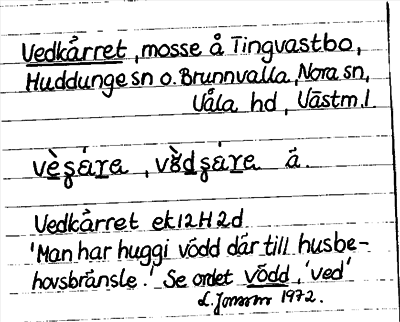 Vedkårret, mosse å Tingvastbo,
Huddunge sn o. Brunnvalla, Nora sn,
Våla hd, Västm.l
ä.
Vedkårret ek 12H 2d
'Man har huggi vödd där till husbe-
hovsbränsle.' Se ordet vödd, 'ved'
1972.